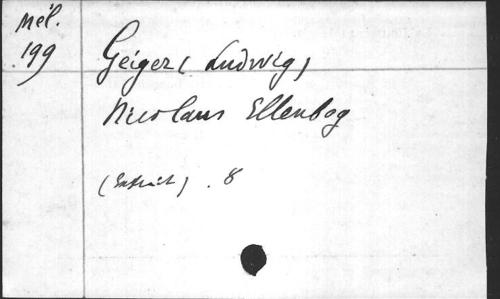 Mél.
199
Geiger (Ludwig)
Nicolaus Ellenbog
(Extrait). 8